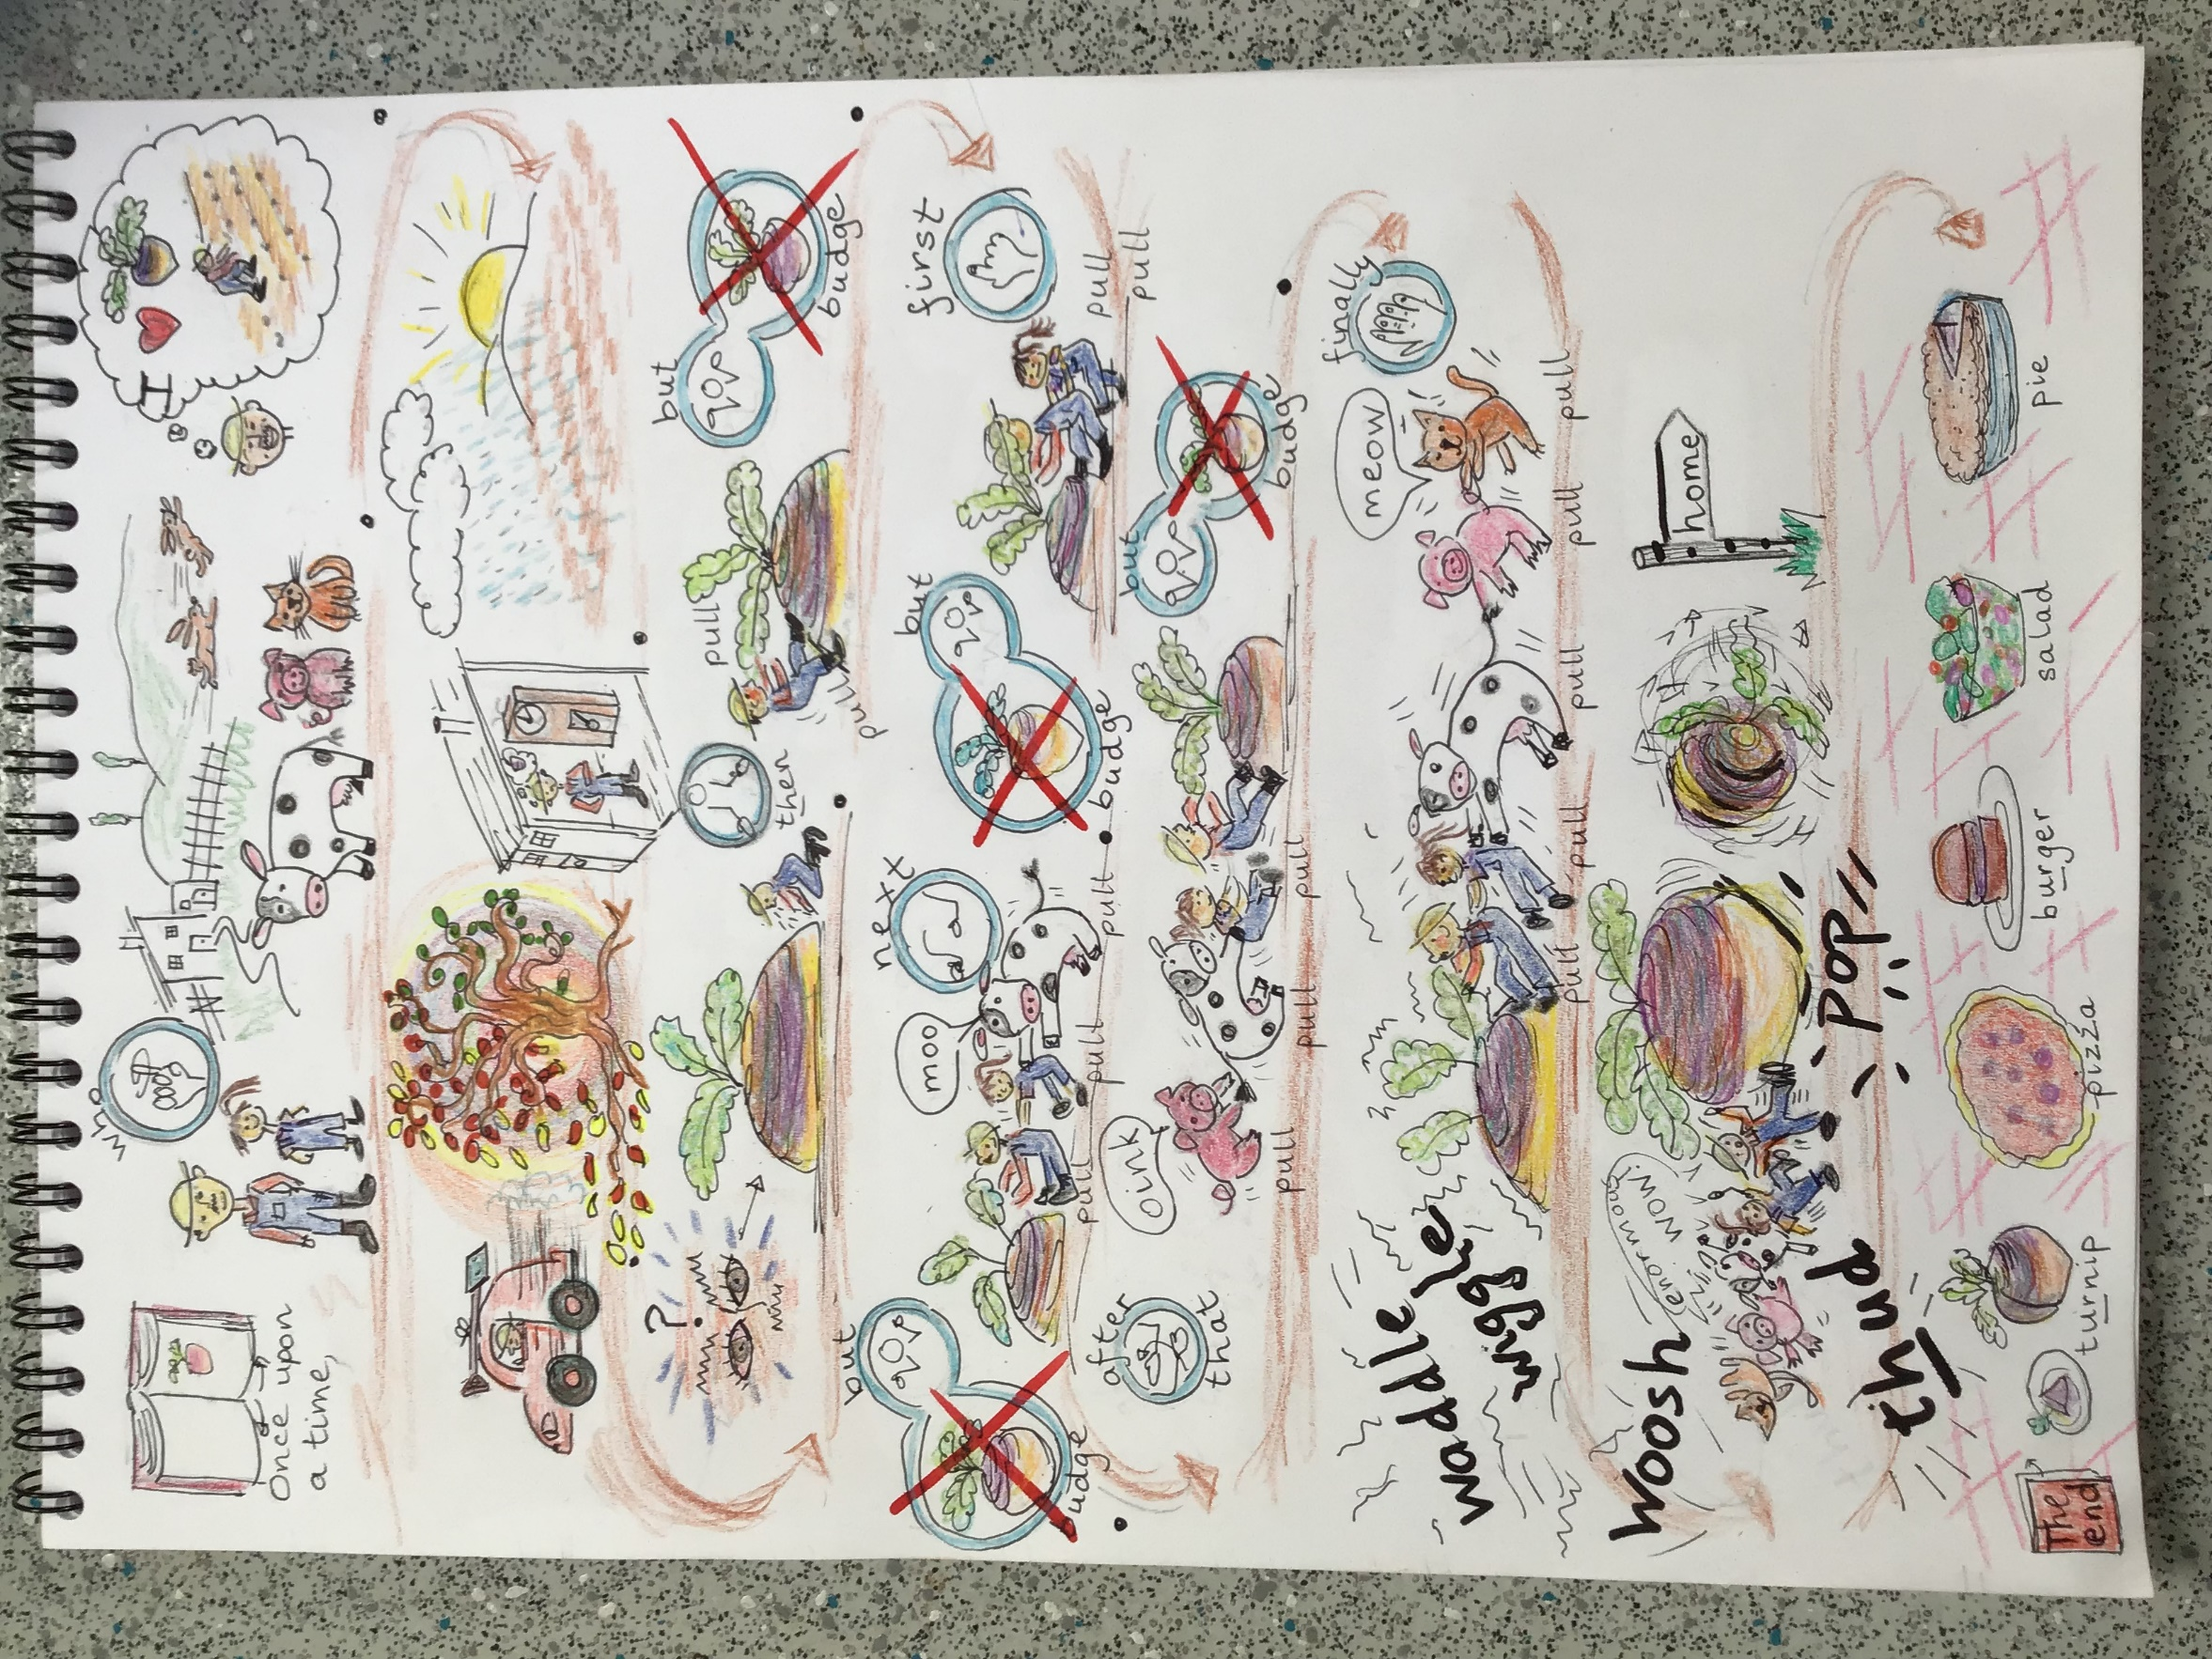 Once upon
a time,
who
I
?
then
pull
pull
but
budge
first
pull
pull
but
budge
next
moo
pull
pull
pull
but
budge
after
that
oink
pull
pull
pull
but
budge
finally
meow
pull
pull
pull
pull
pull
waddle
wiggle
woosh
enormous
WOW!
POP
thud
home
pie
salad
burger
pizza
turnip
The
end